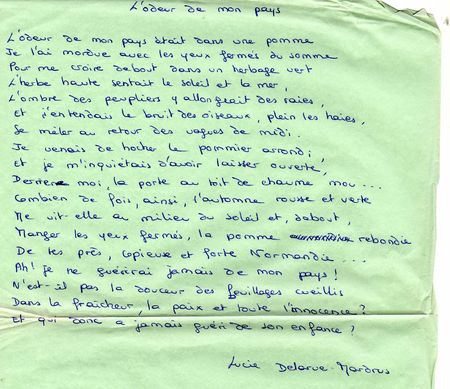 L'odeur de mon pays
L'odeur de mon pays était dans une pomme
Je l'ai mordue avec les yeux fermés du somme
Pour me croire debout dans un herbage vert
L'herbe haute sentait le soleil et la mer,
L'ombre des peupliers y allongeait des raies,
Et j'entendais le bruit des oiseaux, plein les haies,
Se mêler au retour des vagues de midi.
Je venais de hocher le pommier arrondi,
Et je m'inquiétais d'avoir laisser ouverte,
Derrière moi, la porte au toit de chaume mou...
Combien de fois, ainsi, l'automne rousse et verte
Me vit-elle au milieu du soleil et, debout,
Manger les yeux fermés, la pomme rebondie
De tes près, copieuse et forte Normandie...
Ah! je ne guérirai jamais de mon pays!
N'est-il pas la douceur des feuillages cueillis
Dans la fraîcheur, la paix et toute l'innocence?
Et qui donc a jamais guéri de son enfance?
Lucie Delarue-Mardrus